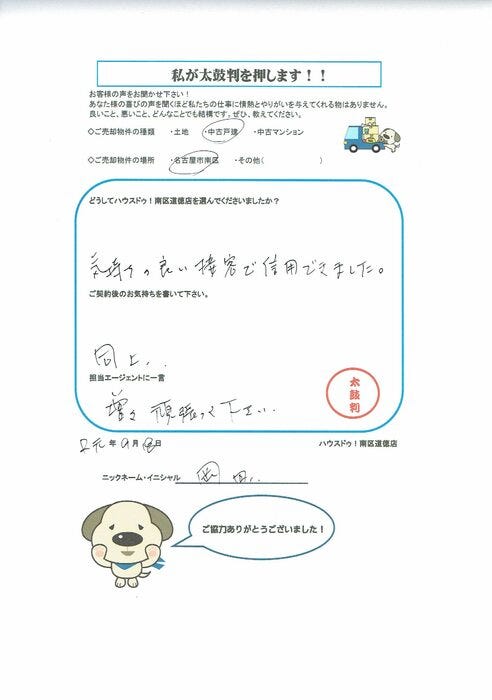 私が太鼓判を押します！！
お客様の声をお聞かせ下さい！
あなた様の喜びの声を聞くほど私たちの仕事に情熱とやりがいを与えてくれる物はありません。
良いこと、悪いこと、どんなことでも結構です。ぜひ、教えてください。
◇ご売却物件の種類 ・土地 ・中古戸建 ・中古マンション
◇ご売却物件の場所 ・名古屋市南区 ・その他( )
どうしてハウスドゥ！南区道徳店を選んでくださいましたか？
気持ちの良い接客で信用できました。
ご契約後のお気持ちを書いて下さい。
同上..
担当エージェントに一言
増々頑張って下さい..
太鼓判
元年9月 日
ハウスドゥ！南区道徳店
ニックネーム・イニシャル 岡田..
ご協力ありがとうございました！